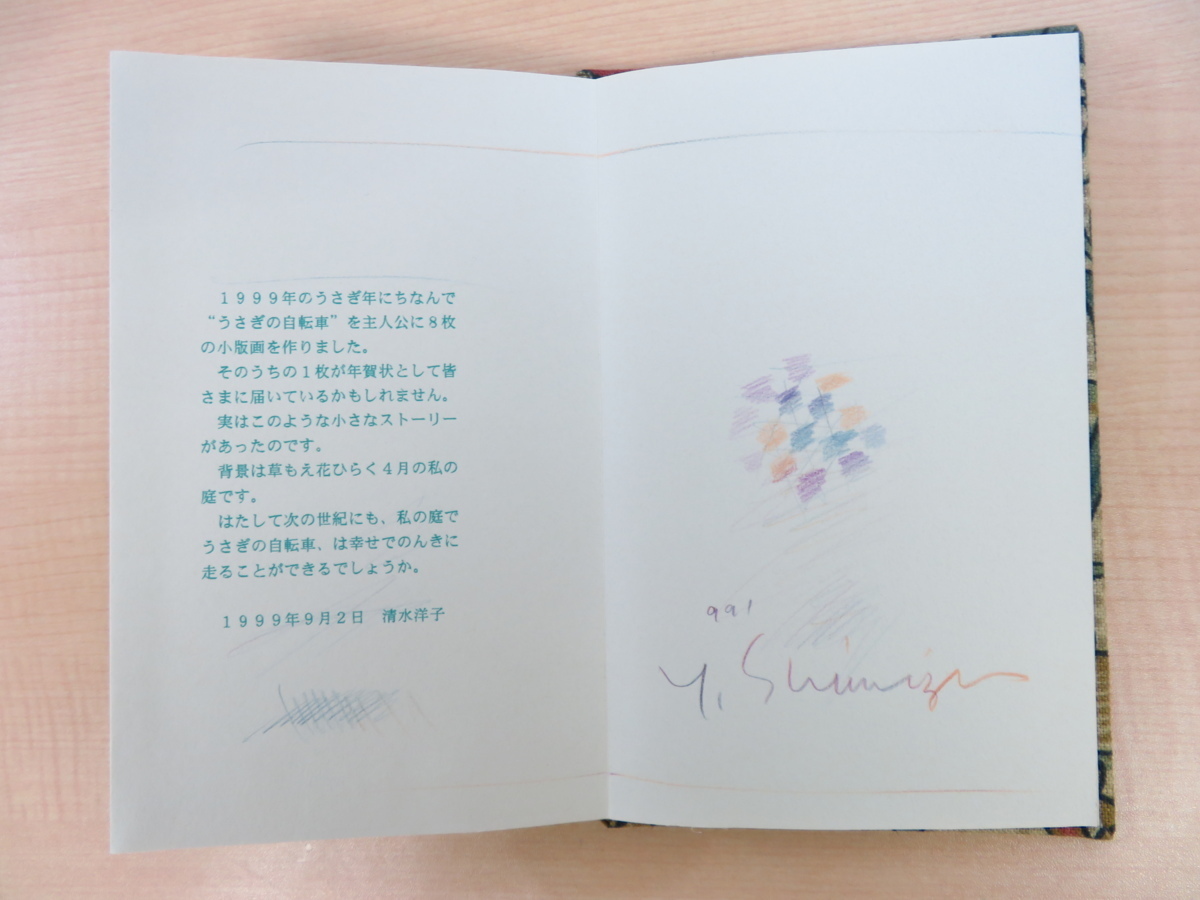 １９９９年のうさぎ年にちなんで
“うさぎの自転車”を主人公に８枚
の小版画を作りました。
そのうちの１枚が年賀状として皆
さまに届いているかもしれません。
実はこのような小さなストーリー
があったのです。
背景は草もえ花ひらく４月の私の
庭です。
はたして次の世紀にも、私の庭で
うさぎの自転車、は幸せでのんきに
走ることができるでしょうか。
１９９９年９月２日　清水洋子
991
Y. Shimizu